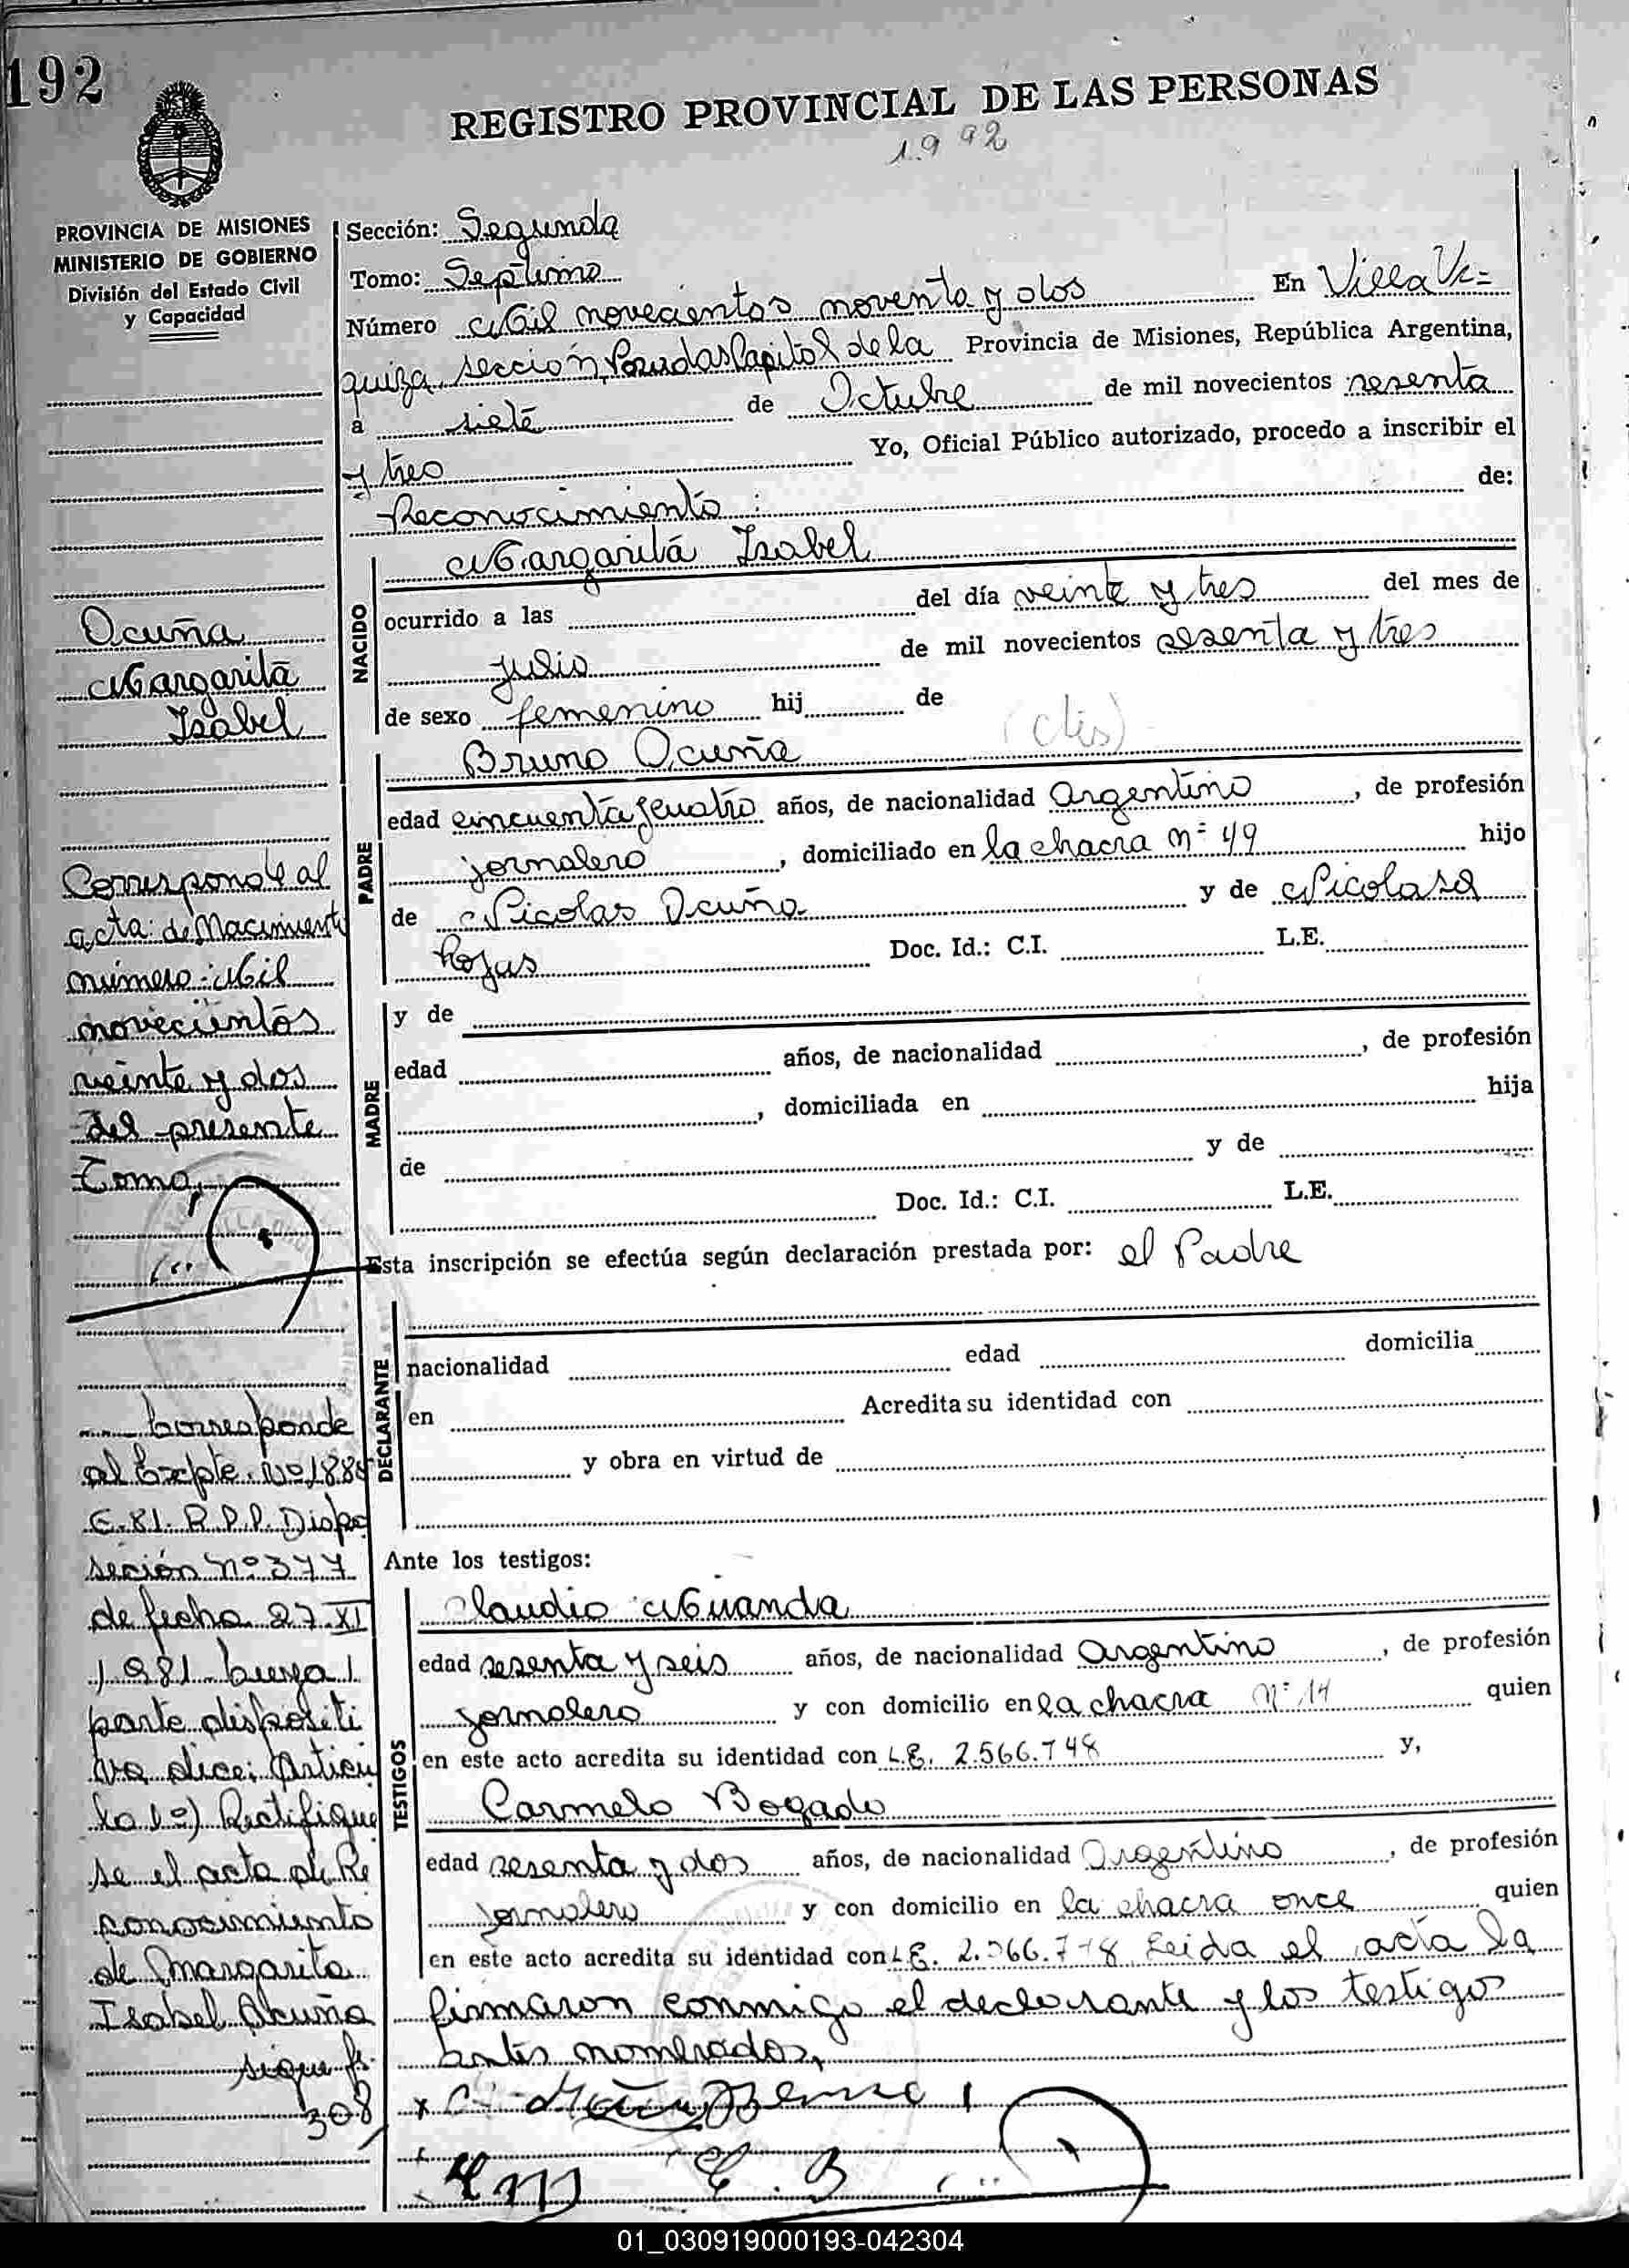 192
REGISTRO PROVINCIAL DE LAS PERSONAS
1992
PROVINCIA DE MISIONES
MINISTERIO DE GOBIERNO
División del Estado Civil
y Capacidad
Sección: Segunda
Tomo: Septimo
Número Mil novecientos noventa y dos En Villa Ur=
quiza sección Posadas Capital de la Provincia de Misiones, República Argentina,
a siete de Octubre de mil novecientos sesenta
y tres Yo, Oficial Público autorizado, procedo a inscribir el
Reconocimiento: de:
Margarita Isabel
NACIDO
ocurrido a las del día veinte y tres del mes de
julio de mil novecientos sesenta y tres
de sexo femenino hij de
Bruno Ocuña
PADRE
edad cincuenta y cuatro años, de nacionalidad Argentino, de profesión
jornalero, domiciliado en la chacra Nº 49 hijo
de Nicolas Ocuña y de Nicolasa
Rojas Doc. Id.: C.I. L.E.
MADRE
y de
edad años, de nacionalidad, de profesión
, domiciliada en hija
de y de
Doc. Id.: C.I. L.E.
Esta inscripción se efectúa según declaración prestada por: el Padre
DECLARANTE
nacionalidad edad domicilia
en Acredita su identidad con
y obra en virtud de
Ante los testigos:
TESTIGOS
Claudio Miranda
edad sesenta y seis años, de nacionalidad Argentino, de profesión
jornalero y con domicilio en la chacra Nº 14 quien
en este acto acredita su identidad con L.E. 2.566.748 y,
Carmelo Bogado
edad sesenta y dos años, de nacionalidad Argentino, de profesión
jornalero y con domicilio en la chacra once quien
en este acto acredita su identidad con L.E. Leida el acta la
firmaron conmigo el declarante y los testigos
antes nombrados,
Ocuña
Margarita
Isabel
Corresponde al
acta de Nacimiento
número: Mil
novecientos
veinte y dos
del presente
Tomo,
Corresponde
al Expte. Nº 1885
E-81. R.P.P. Dispo
sición nº 377
de fecha 27-XI
1981 cuya
parte dispositi
va dice: Artícu
lo 1º) Rectifique
se el acta de Re
conocimiento
de Margarita
Isabel Acuña
sigue fs.
308
01_030919000193-042304